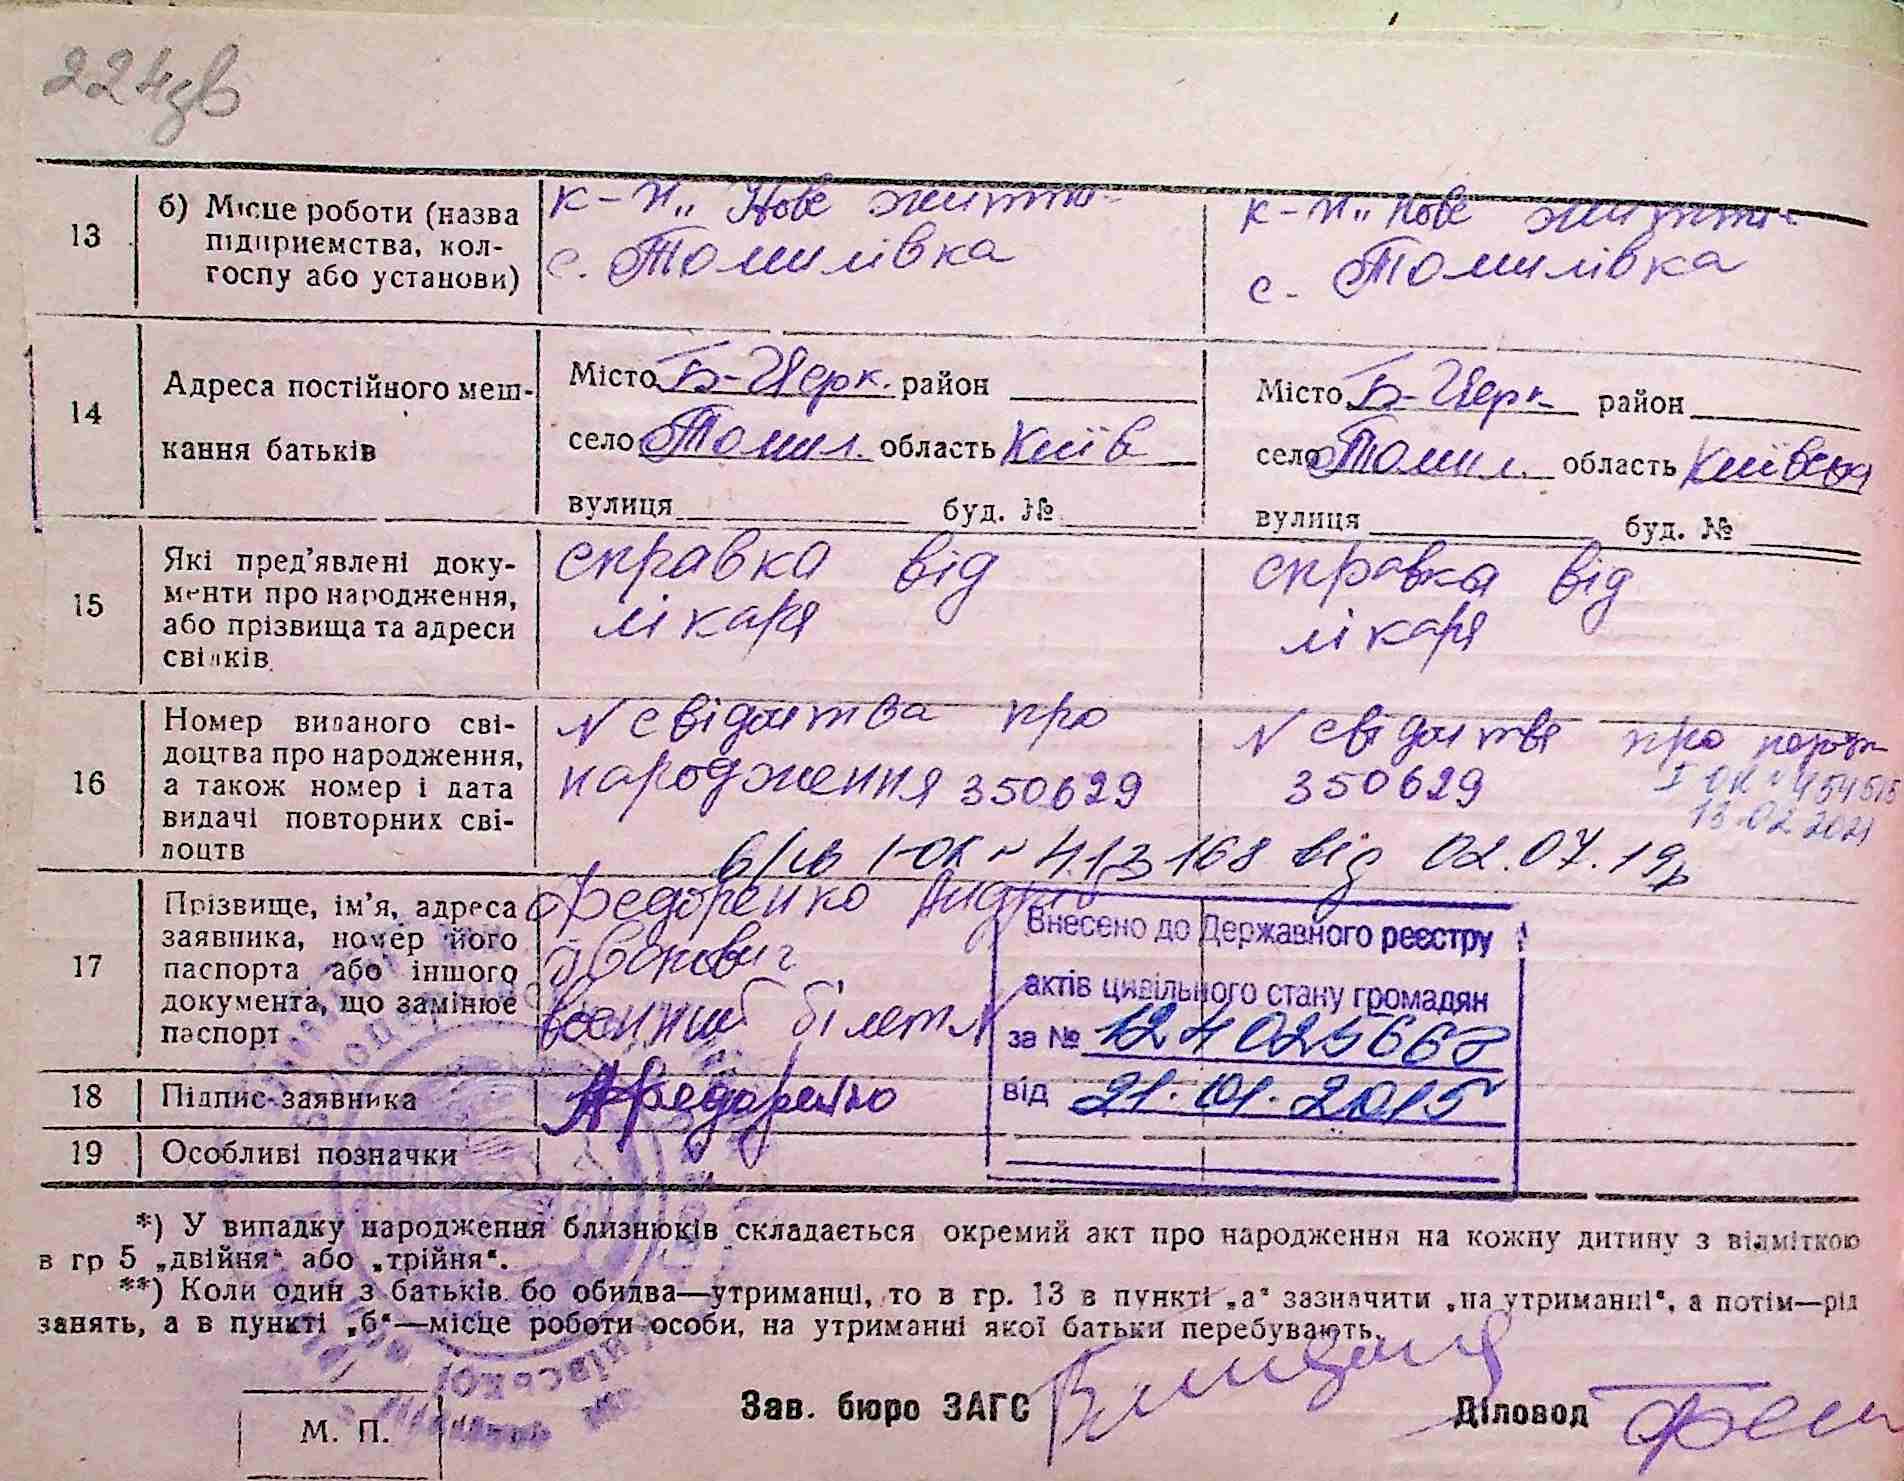 224зв
13
б) Місце роботи (назва
підприємства, кол-
госпу або установи)
к-п „Нове життя
с. Томилівка
к-п „Нове життя
с. Томилівка
14
Адреса постійного меш-
кання батьків
Місто Б-Церк. район
село Томил. область Київ
вулиця буд. №
Місто Б-Церк район
село Томил. область Київська
вулиця буд. №
15
Які пред'явлені доку-
менти про народження,
або прізвища та адреси
свідків
справка від
лікаря
справка від
лікаря
16
Номер виданого сві-
доцтва про народження,
а також номер і дата
видачі повторних сві-
доцтв
N свідоцтва про
народження 350629
N свідоцтва про народж
350629
І ОК № 454515
13.02.2021
І-ОК № 413168 від 02.07.19р
17
Прізвище, ім'я, адреса
заявника, номер його
паспорта або іншого
документа, що замінює
паспорт
Федоренко Андрій
Іванович
военний білет
Внесено до Державного реєстру
актів цивільного стану громадян
за №
від 21.01.2015
18
Підпис заявника
АФедоренко
19
Особливі позначки
*) У випадку народження близнюків складається окремий акт про народження на кожну дитину з відміткою
в гр 5 „двійня“ або „трійня“.
**) Коли один з батьків бо обидва—утриманці, то в гр. 13 в пункті „а“ зазначити „на утриманні“, а потім—рід
занять, а в пункті „б“—місце роботи особи, на утриманні якої батьки перебувають.
М. П.
Зав. бюро ЗАГС
Діловод